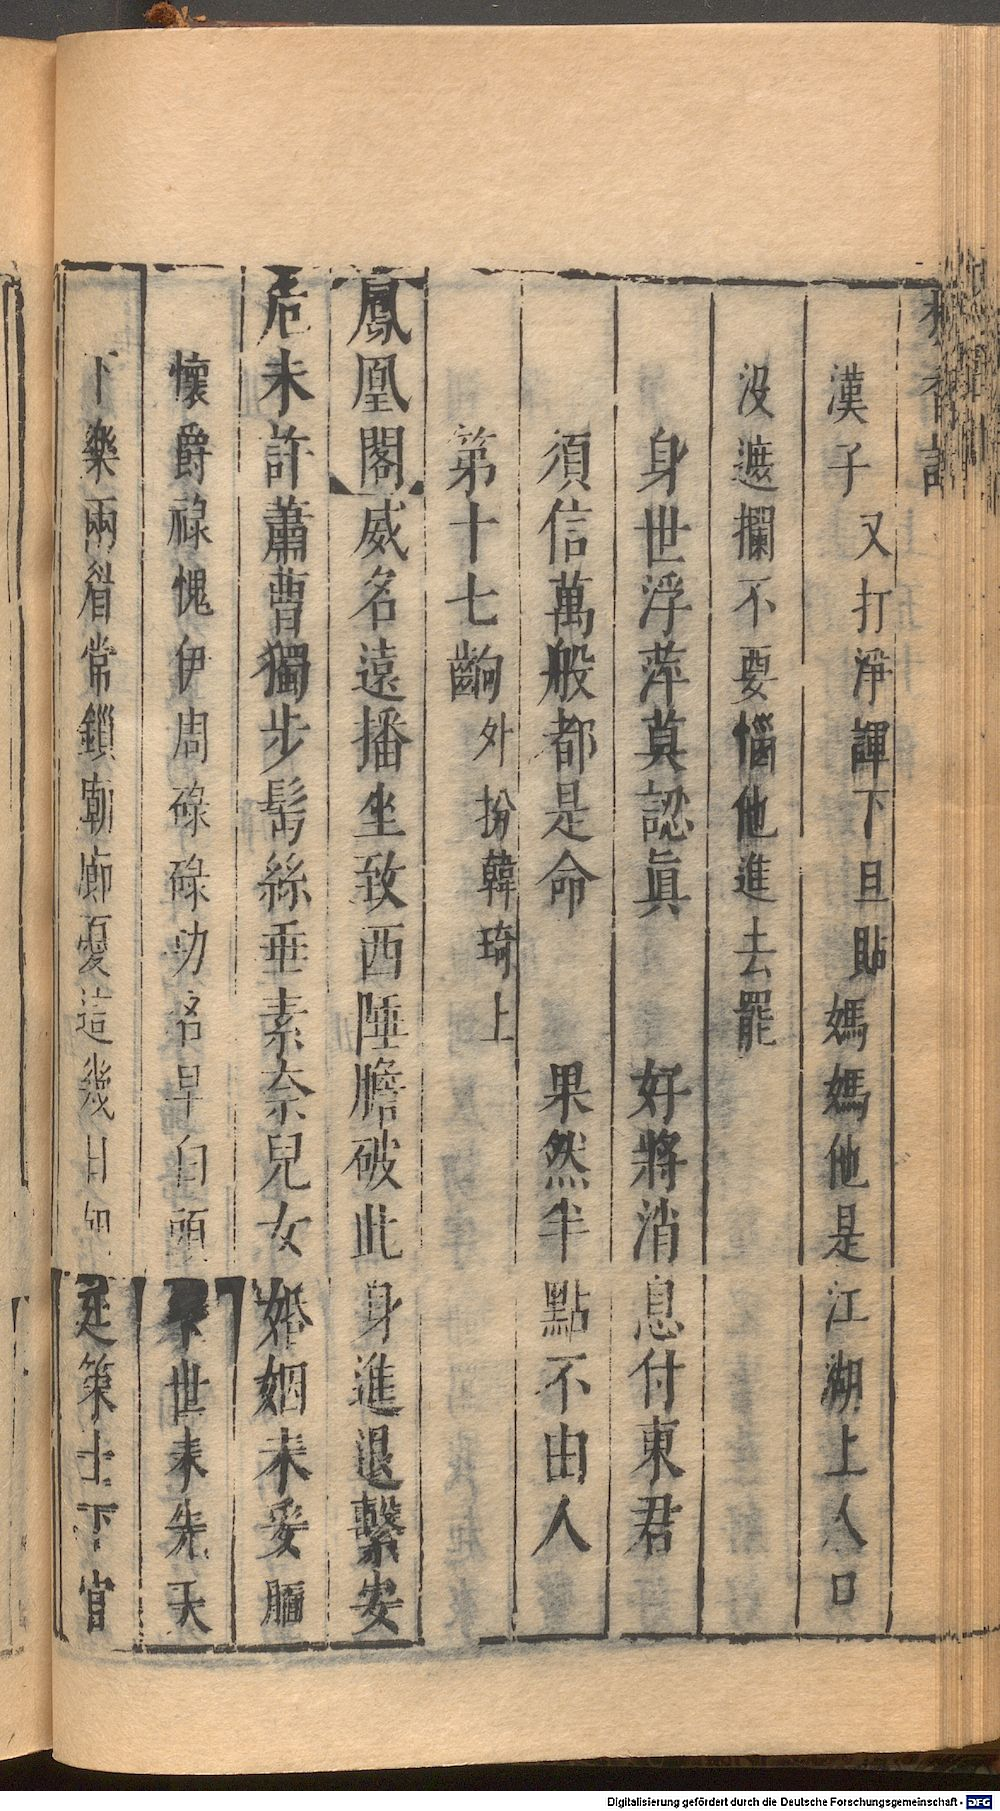 香記
漢子又打淨諢下旦貼媽媽他是江湖上人口
沒遮攔不要惱他進去罷
身世浮萍莫認眞 好將消息付東君
須信萬般都是命 果然半點不由人
第十七齣外扮韓琦上
鳳凰閣威名遠播坐致西陲膽破此身進退繫安
危未許蕭曹獨步髩絲垂素奈兒女婚姻未妥
懷爵祿愧伊周碌碌功名早白頭 世未先天
下樂兩眉常鎖廟廊憂這幾日 廷策士下官
Digitalisierung gefördert durch die Deutsche Forschungsgemeinschaft - DFG